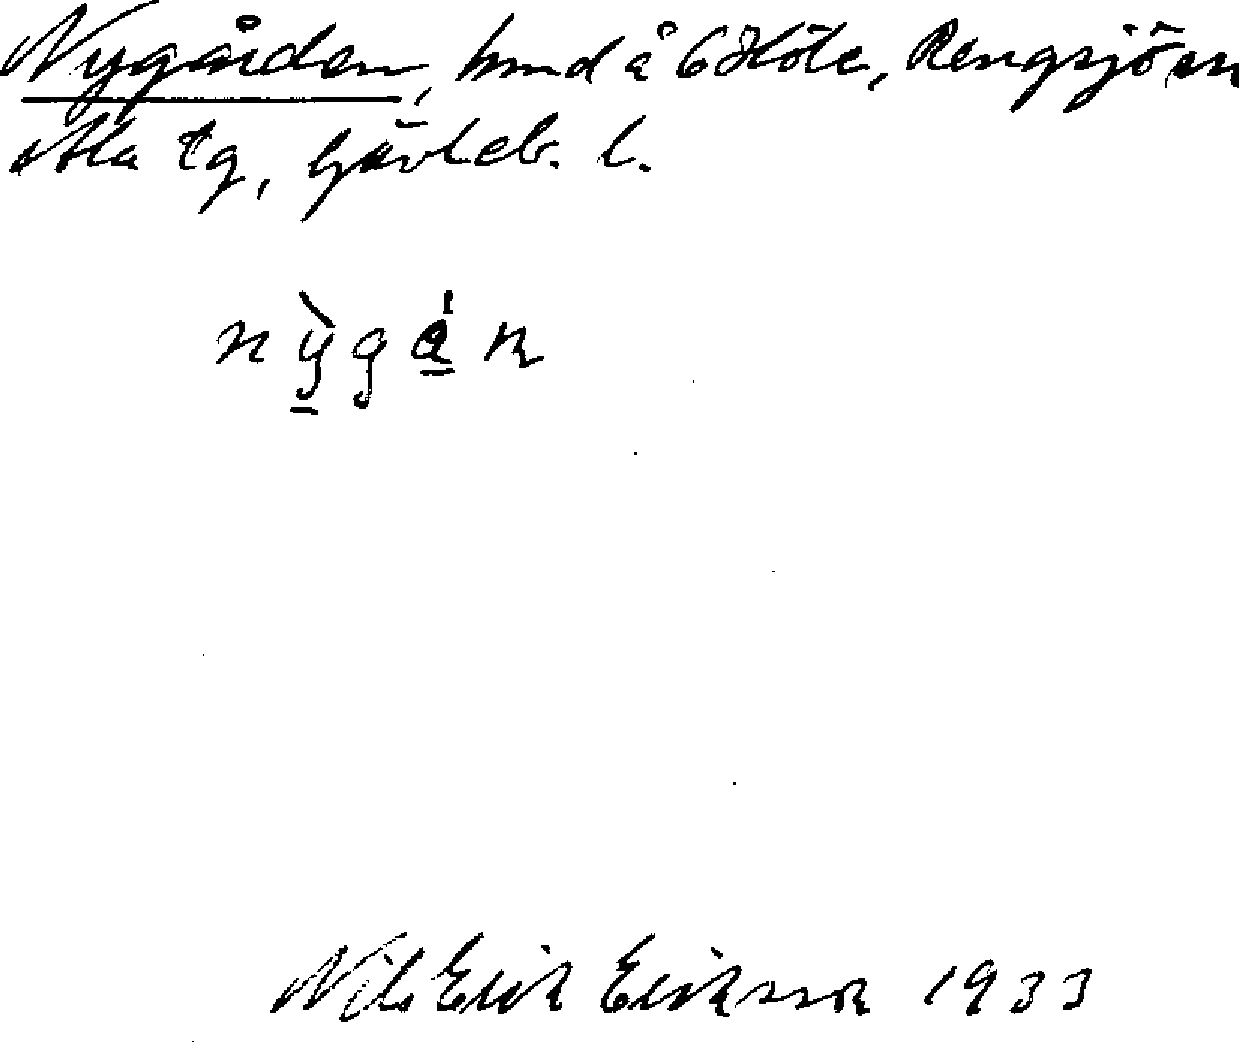 Nygården, hmd å 6 Höle, Rengsjö sn
Ala tg, Gävleb. l.
nỳgán
Nils Erik Eriksson 1933